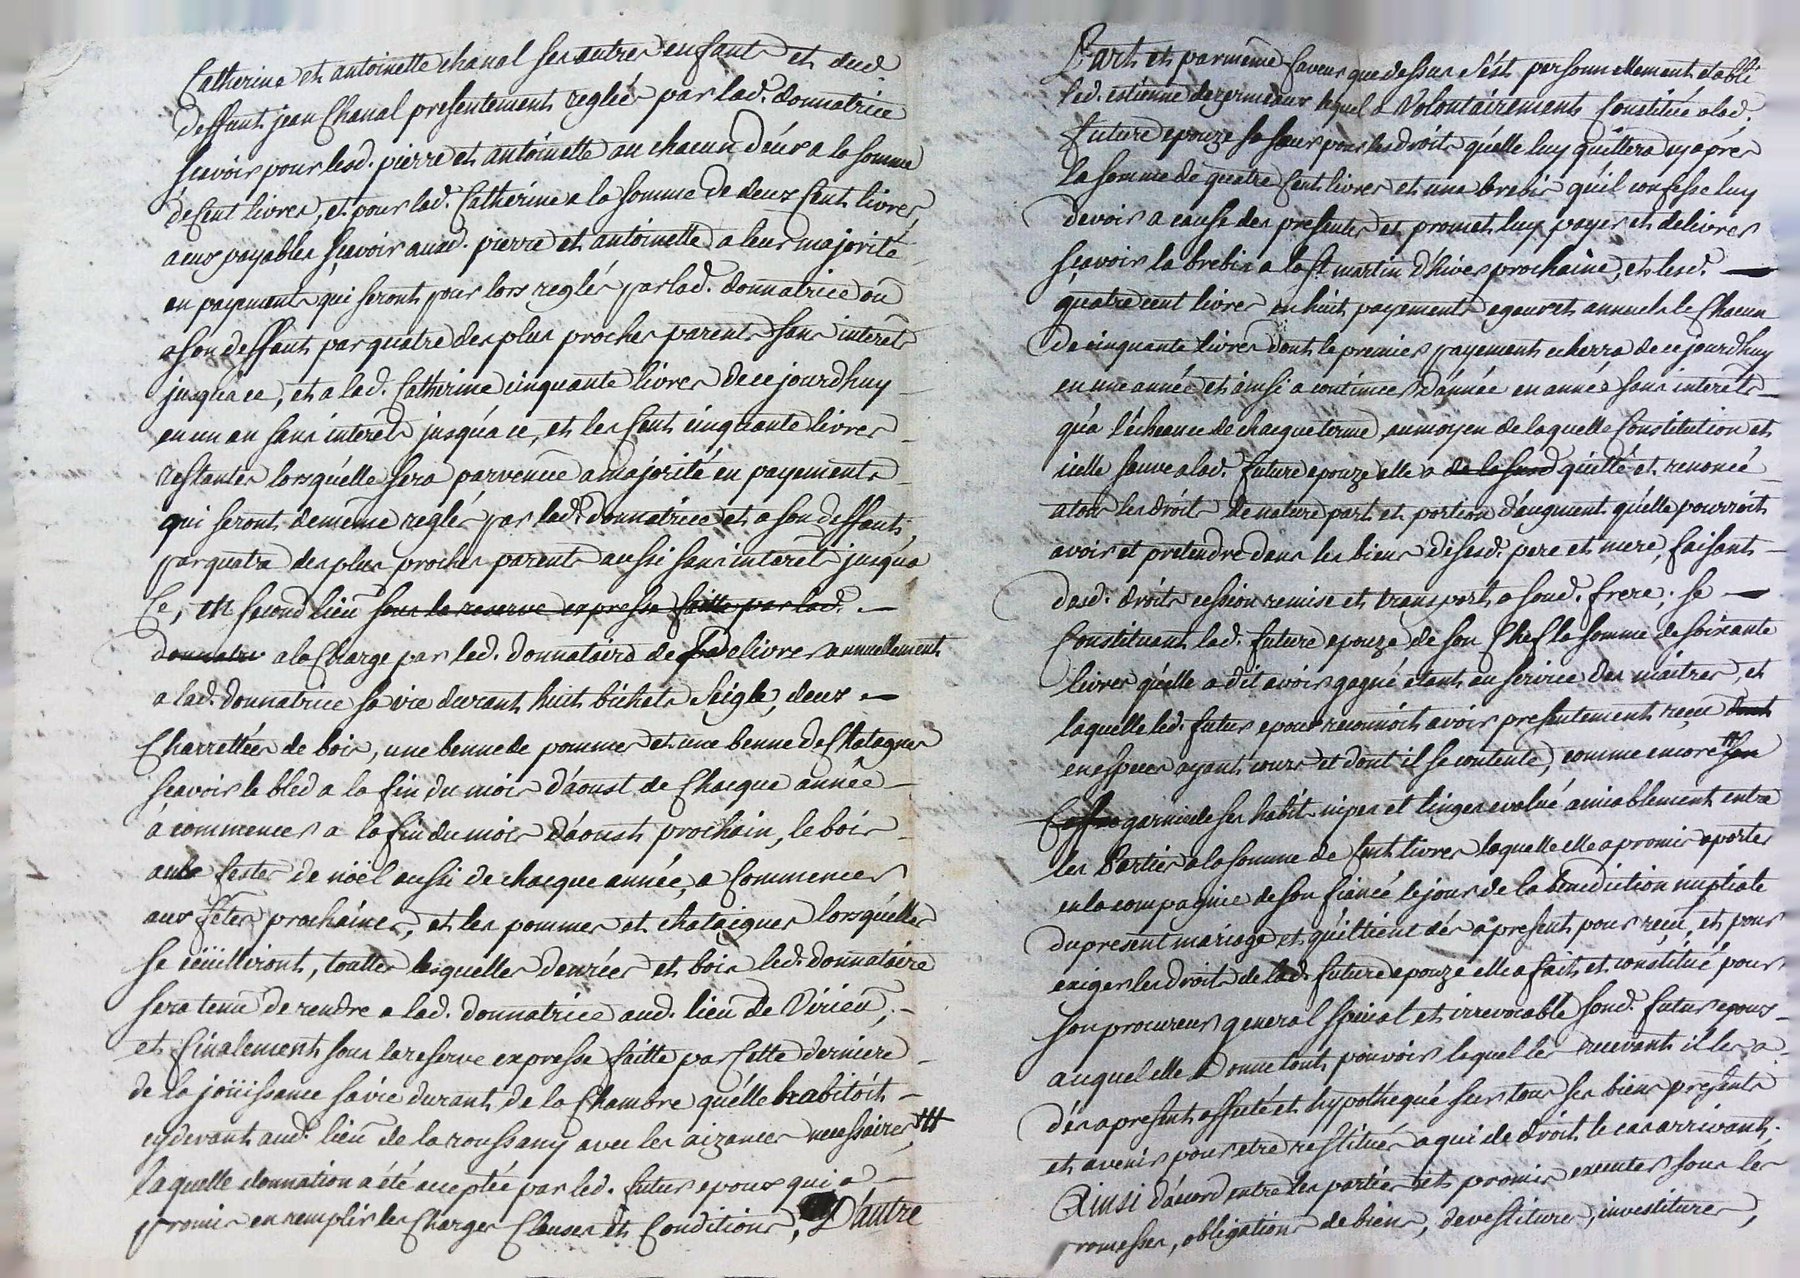 Catherine et antoinette chanal ses autres enfants et dud.
deffunt jean Chanal presentement reglée par lad. donnatrice
sçavoir pour lesd. pierre et antoinette au chacun d'éux a la somme
de Cent livres, et pour lad. Catherine a la somme de deux Cent livres,
a eux payables sçavoir auxd. pierre et antoinette a leur majorité
en payements qui seront pour lors reglés par lad. donnatrice ou
a son deffaut par quatre des plus proches parents sans interets
jusqu'a ce, et a lad. Catherine cinquante livres de ce jourdhuy
en un an sans interets jusqu'a ce, et les Cent cinquante livres
restantes lors qu'elle sera parvenüe a majorité en payements
qui seront de meme reglés par lad. donnatrice et a son deffaut
par quatre des plus proches parents aussi sans interets jusqu'a
Ce, en second lieu sous la reserve expresse faitte par lad.
donnatrice a la Charge par led. donnataire de delivrer annuellement
a lad. donnatrice sa vie durant huit bichets seigle, deux
Charrettées de bois, une benne de pommes et une benne de Chataignes
sçavoir le bled a la fin du mois d'áoust de Chacque année
à commencer a la fin du mois d'áoust prochain, le bois
aux festes de nöel aussi de chacque année, a Commencer
aux fêtes prochaines, et les pommes et chataignes lorsqu'elles
se ceüilliront, touttes lesquelles denrées et bois led. donnatáire
sera tenu de rendre a lad. donnatrice aud. lieu de Virieu,
et finalement sous la reserve expresse faitte par Cette derniere
de la joüissance sa vie durant de la Chambre qu'elle habitoit
cy devant aud. lieu de la roussany avec les aizances necessaires,
laquelle donnation a été acceptée par led. futur epoux qui a
promis en remplir les Charges Clauses et Conditions, D'áutre
Part et par méme faveur que dessus s'ést personnellement établi
led. estienne desprimeaux lequel a Volontáirement Constitué a lad.
future epouze sa sœur pour les droits qu'elle luy quittera cy aprés
la somme de quatre Cent livres et une brebis qu'il confesse luy
devoir a cause des presentes et promet luy payer et delivrer
sçavoir la brebis a la st martin d'hiver prochaine, et lesd.
quatre cent livres en huit payements egaux et annuels le Chacun
de cinquante livres dont le premier payement echerra de ce jourdhuy
en une année et áinsi a continuer d'année en année sans interets
qu'a l'écheance de chacque terme, au moyen de laquelle Constitution et
icelle sauve a lad. future epouze elle a de la sused quitté et renoncé
a tous les droits de nature part et portion d'augment qu'elle pourroit
avoir et pretendre dans les biens de sesd. pere et mere, faisant
desd. droits cession remise et transport a sond. frere; se
Constituant lad. future epouze de son Chef la somme de soixante
livres qu'elle a dit avoir gagné etant au service des máitres, et
laquelle led. futur epoux reconnoit avoir presentement reçu dont
en especes ayant cours et dont il se contente, comme encore son
Coffre garni de ses habits nipes et linges evalué amiablement entre
les Parties a la somme de Cent livres laquelle elle a promis aporter
en la compagnie de son fiancé le jour de la benediction nuptiale
du present mariage et qu'il tient dés a present pour reçu, et pour
exiger les droits de lad. future epouze elle a fait et constitué pour
son procureur general special et irrevocable sond. futur epoux
auquel elle Donne tout pouvoir lequel les recevant il les a
dés a present affecté et hypothequé sur tous ses biens presents
et avenir pour etre restitués a qui de droit le cas arrivant.
Ainsi d'áccord entre les parties et promis executer sous les
romesses, obligations de biens, devestitures, investitures,